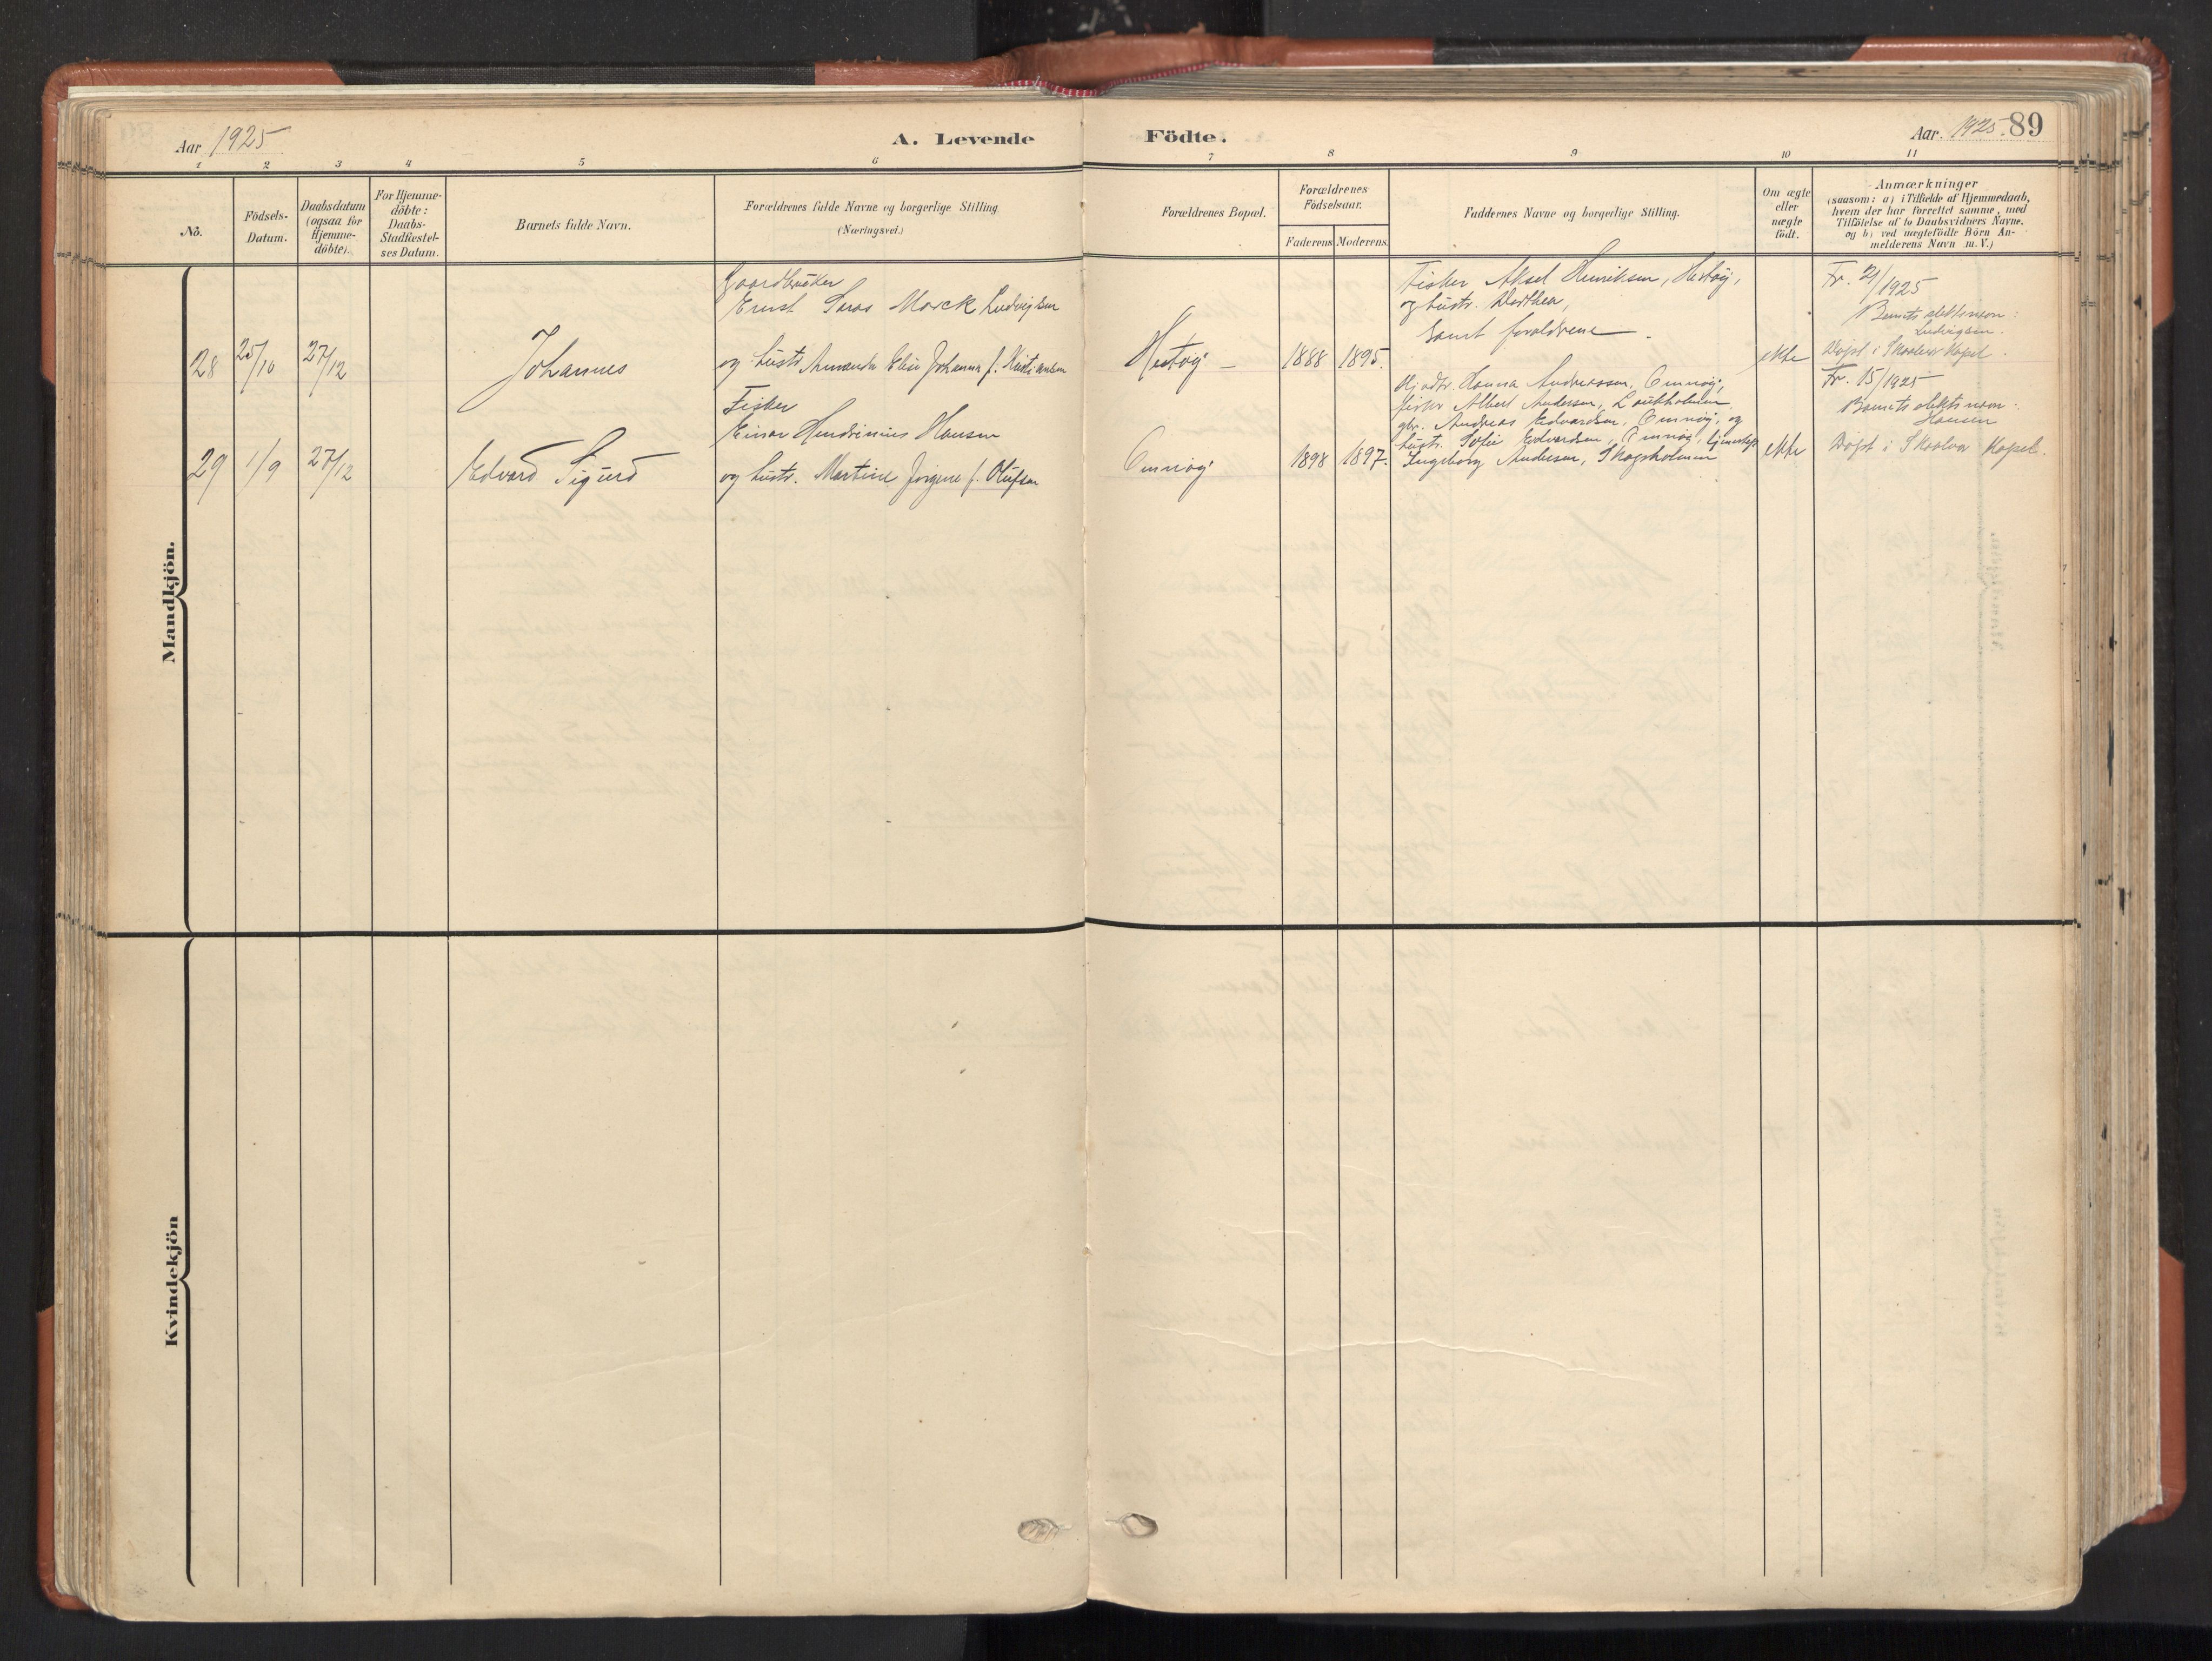 Aar 1925
A. Levende
Födte.
Aar. 1925. 89
1 2 3 4 5 6 7 8 9 10 11
No.
Födsels-
Datum.
Daabsdatum
(ogsaa for
Hjemme-
döbte).
For Hjemme-
döbte:
Daabs-
Stadfæstel-
ses Datum.
Barnets fulde Navn.
Forældrenes fulde Navne og borgerlige Stilling
(Næringsvei.)
Forældrenes Bopæl.
Forældrenes
Födselsaar.
Faderens Moderens.
Faddernes Navne og borgerlige Stilling.
Om ægte
eller
uægte
födt.
Anmærkninger
(saasom: a) i Tilfælde af Hjemmedaab,
hvem der har forrettet samme, med
Tilföielse af to Daabsvidners Navne.
og b) ved uægtefödte Börn An-
melderens Navn m. V.)
Mandkjön.
28
25/10
27/12
Johannes
Gaardbruker
Ernst Marck Ludvigsen
og hustr. Amanda Elise Johanna f. Kristiansen
Hestøy
1888 1895.
Fisker Aksel Henriksen, Hestøy,
og hustr. Dorthea,
samt forældrene
ekte
Fr. 21/1925
Barnets slektsnavn:
Ludvigsen.
Døpt i Skaalvær Kapel.
29
1/9
27/12
Edvard Sigurd
Fisker
Einar Hendrinius Hansen
og hustr. Martine Jørgine f. Olufsen
Omnøy
1898 1897.
Hanna Andreassen, Omnøy,
fisker Albert Andersen,
gbr. Andreas Edvardsen, Omnøy, og
hustr. Sofie Edvardsen, Omnøy,
Ingeborg Andersen, Skogsholmen
ekte
Fr. 15/1925
Barnets slektsnavn:
Hansen
Døpt i Skaalvær Kapel.
Kvindekjön